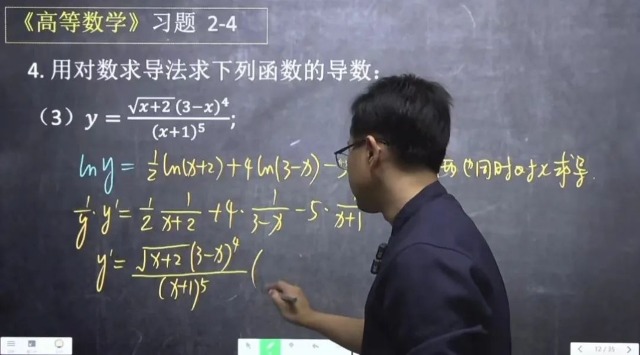 《高等数学》习题 2-4
4. 用对数求导法求下列函数的导数:
（3）y = \frac{\sqrt{x+2}(3-x)^4}{(x+1)^5};
ln y = \frac{1}{2}ln(x+2)+4ln(3-x)-5 同时对x求导.
\frac{1}{y}·y' = \frac{1}{2}\frac{1}{x+2}+4·\frac{1}{3-x}-5·\frac{1}{x+1}
y' = \frac{\sqrt{x+2}(3-x)^4}{(x+1)^5}(
12/35